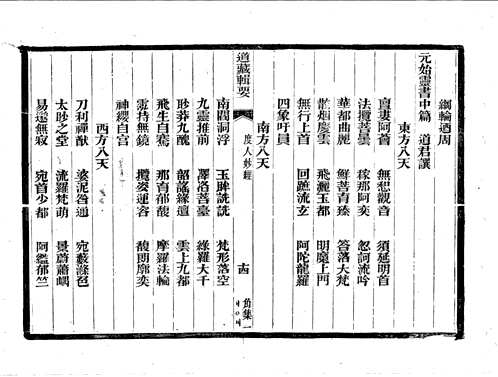 綱輪迢周
元始靈書中篇 道君讓
東方八天
亶婁阿薈 無惒觀音 須延明首
法攬菩曇 稼那阿奕 忽訶流吟
華都曲麗 鮮菩育臻 答落大梵
散烟慶雲 飛灑玉都 明魔上門
無行上首 回蹠流玄 阿陀龍羅
四象吁員
南方八天
南閻洞浮 玉眸詵詵 梵形落空
九靈推前 澤洛菩臺 綠羅大千
眇莽九醜 韶謠緣邅 雲上九都
飛生自騫 那育郁馥 摩羅法輪
霐持無鏡 攬姿運容 馥朗廓奕
神纓自宮
西方八天
刀利禪猷 婆泥咎通 宛藪滌色
太眇之堂 流羅梵萌 景蔚蕭嵎
易邈無寂 宛首少都 阿鑑郁竺
道藏輯要 度人妙經 十四 角集一